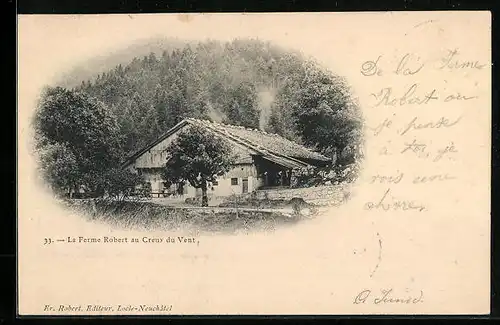 De la Ferme
Robert où
je pense
à toi, je
vois une
chèvre.
33. — La Ferme Robert au Creux du Vent
Er. Robert, Editeur, Locle-Neuchâtel